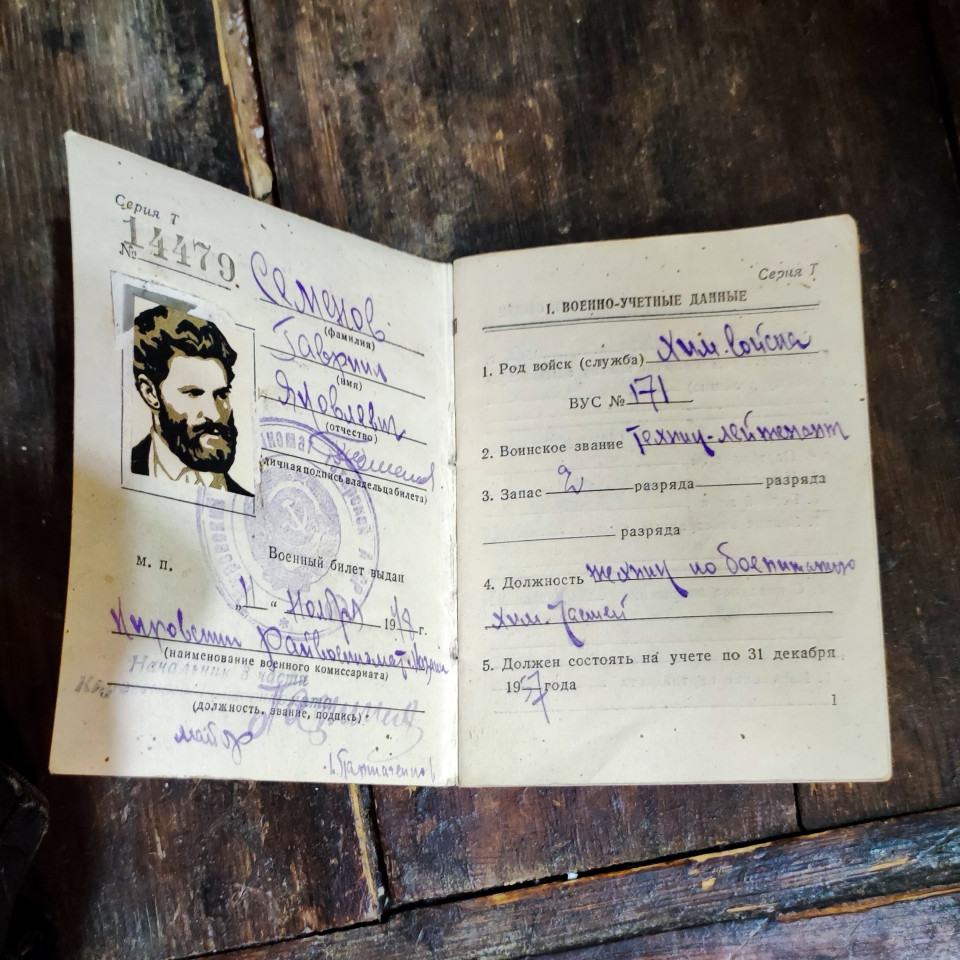 Серия Т
№ 14479
Семенов
(фамилия)
Гавриил
(имя)
Яковлевич
(отчество)
(личная подпись владельца билета)
м. п.
Военный билет выдан
„11“ Ноября 19 г.
Кировский Райвоенкомат
(наименование военного комиссариата)
Начальник 3 части
(должность, звание, подпись)
майор
Серия Т
I. ВОЕННО-УЧЕТНЫЕ ДАННЫЕ
1. Род войск (служба) Хим. войска
ВУС № 171
2. Воинское звание Техник-лейтенант
3. Запас 2 разряда разряда
разряда
4. Должность техник по
хим. частей
5. Должен состоять на учете по 31 декабря
1957 года
1